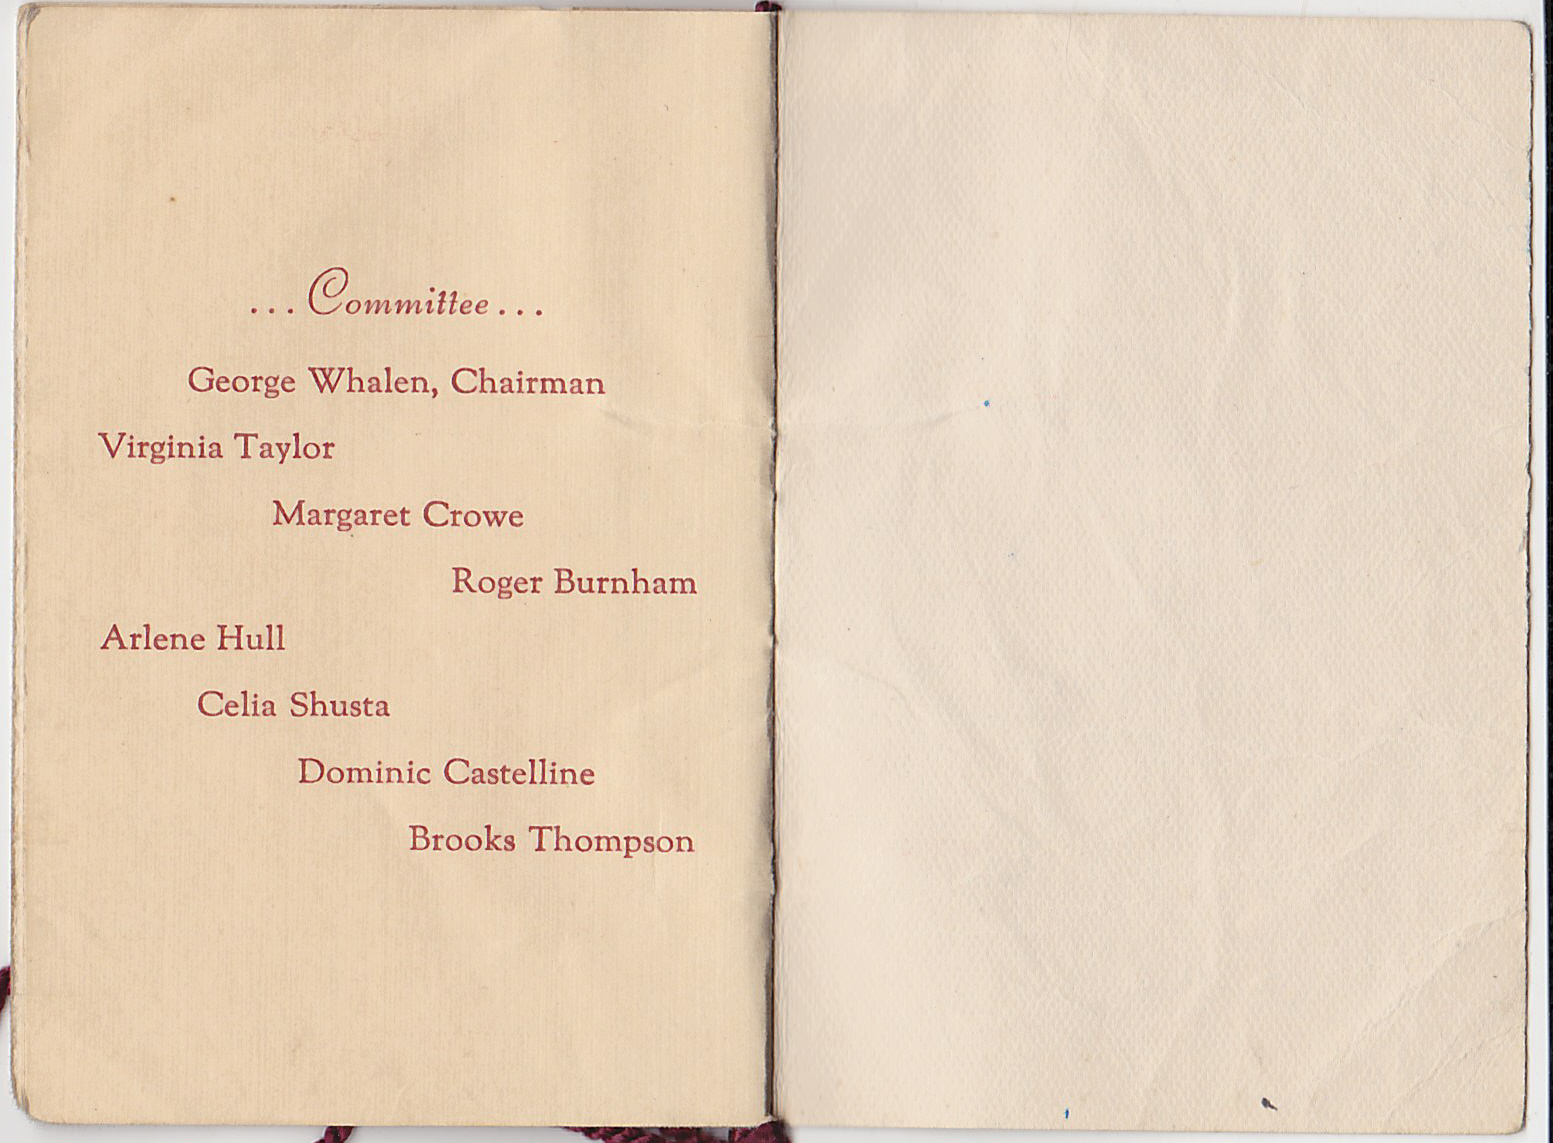 ...Committee...
George Whalen, Chairman
Virginia Taylor
Margaret Crowe
Roger Burnham
Arlene Hull
Celia Shusta
Dominic Castelline
Brooks Thompson